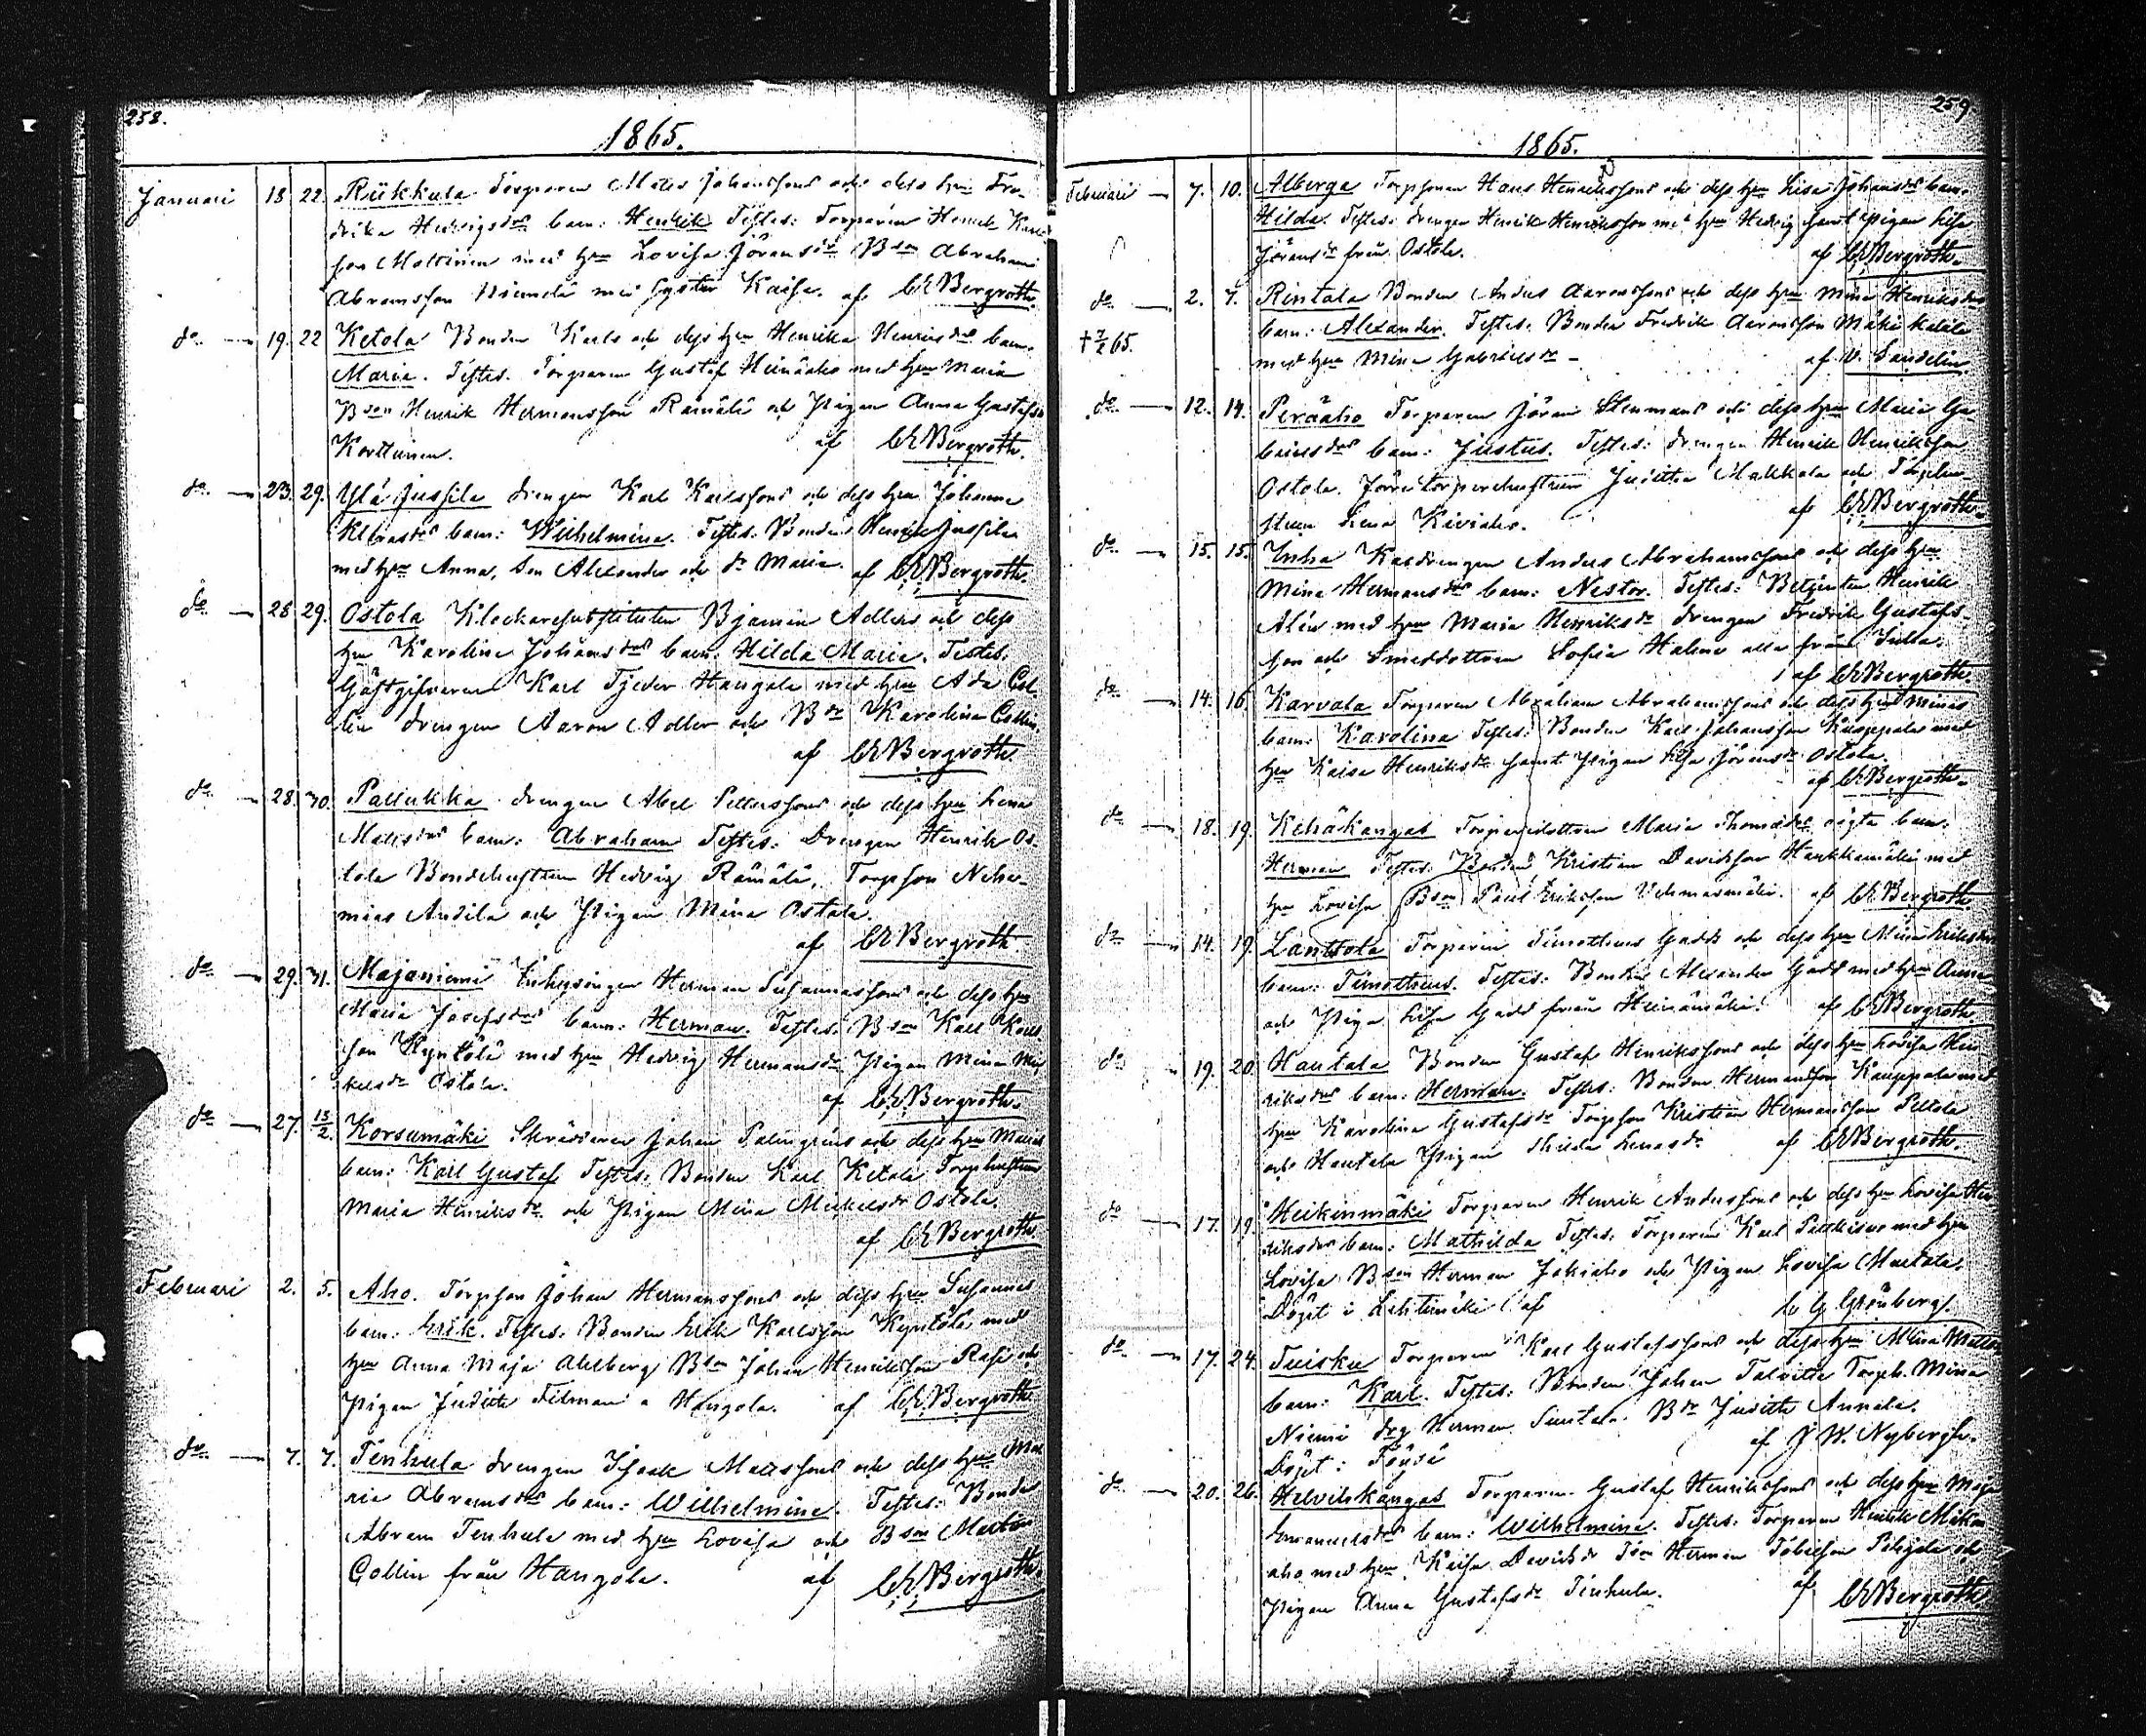 258.
1865.
Januari 18 22. Riikkula Torparen Matts Johanssons och dess hu Fre-
drika Hedvigsdrs barn: Henrik Testes: Torparen Henrik Karls
son Mottinen med hu Lovisa Jöransdr Bson Abraham
Abramsson Niemelä med syster Kaisa. af CEBergroth.
do 19. 22 Ketola Bonden Karls och dess hu Henrika Henriksdrs barn.
Maria. Testes. Torparen Gustaf Heinäaho med hu Maria
Bson Henrik Hermansson Rämälä och Pigan Anna Gustafsdr
Korttunen. af CEBergroth.
do 23. 29. Ylä Jussila drengen Karl Karlssons och dess hu Johanna
barn: Wilhelmina. Testes: Bonden Henrik Jussila
med hu Anna, Son Alexander och dr Maria. af CEBergroth.
do 28 29. Ostola Klockaresubstituten Bjamin Adlers och dess
hu Karolina Johansdrs barn: Hilda Maria. Testes:
Gästgifvaren Karl Tjeder Hangola med hu Ada Col-
lin drengen Aaron Adler och Bdr Karolina Collin.
af CEBergroth.
do 28. 30. Pallukka drengen Abel Petterssons och dess hu Lena
Mattsdrs barn: Abraham Testes: Drengen Henrik Os-
tola Bondehustrun Hedvig Rämälä, Torpson Nehe-
mias Andila och Pigan Mina Ostola.
af CEBergroth.
do 29. 31. Majaniemi Inhysingen Herman Susannassons och dess hu
Maria Josefsdrs barn: Herman. Testes: Bson Karl Karls
son Kyntölä med hu Hedvig Hermansdr Pigan Mina Mi
kelsdr Ostola. af CEBergroth.
do 27. 15/2. Korsumäki Skräddaren Johan Palmgréns och dess hu Marias
barn: Karl Gustaf Testes: Bonden Karl Ketola Torphustrun
Maria Henriksdr och Pigan Mina Mickelsdr Ostola.
af CEBergroth.
Februari 2. 5. Aho. Torpson Johan Hermanssons och dess hu Susannas
barn: Erik. Testes: Bonden Erik Karlsson Kyntölä med
hu Anna Maja Ahlberg Bson Johan Henriksson Rasi och
Pigan Judith Filman a Hangola. af CEBergroth.
do 7. 7. Tenhula drengen Isaak Matssons och dess hu Ma
ria Abramsdrs barn: Wilhelmina. Testes: Bonden
Abram Tenhula med hu Lovisa och Bson Martin
Collin från Hangola. af CEBergroth.
259.
1865.
Februari 7. 10. Alberga Torpsonen Hans Henrikssons och dess hu Lisa Johansdrs barn.
Hilda. Testes: drengen Henrik Henriksson med hu Hedvig samt Pigan Lisa
Jöransdr från Ostola. af CEBergroth.
do 2. 7. Rintala Bonden Anders Aaronssons och dess hu Mina Henriksdrs
† 7/2 65. barn: Alexander. Testes: Bonden Fredrik Aaronsson Mäkikatila
med hu Mina Gabrielsdr - af V. Sandelin.
do 12. 14. Peräaho Torparen Jöran Stenmans och dess hu Maria Ga-
brielsdrs barn: Justus. Testes: drengen Henrik Henriksson
Ostola. Förre torparehustrun Juditha Makkola och
Lena Kiviaho. af CEBergroth.
do 15. 15. Inha Kardrengen Anders Abrahamssons och dess hu
Mina Hermansdrs barn: Nestor. Testes: Betjenten Henrik
Alén med hu Maria Henriksdr drengen Fredrik Gustafs-
son och Smeddottren Sofia Halme alla från Inha.
af CEBergroth.
do 14. 16. Karvala Torparen Abraham Abrahamssons och dess hu Minas
barn: Karolina Testes: Bonden Karl Johansson Kauppala med
hu Kaisa Henriksdr samt Pigan Lisa Jöransdr Ostola.
af CEBergroth.
do 18. 19. Kehäkangas Torparedottren Maria Thomasdrs oägta barn:
Herman Testes: Bonden Kristian Davidsson Haukkamäki med
hu Lovisa Bson Paul Eriksson Vehmasmäki. af CEBergroth.
do 14. 19. Lanttola Torparen Timotheus Gadds och dess hu Mina Eriksdrs
barn: Timotheus. Testes: Bonden Alexander Gadd med hu Anna
och Piga Lisa Gadd från Heinämäki. af CEBergroth.
do 19. 20. Hautala Bonden Gustaf Henrikssons och dess hu Lovisa Hen
riksdrs barn: Herman. Testes: Bonden Hermansson Kauppala med
hu Karolina Gustafsdr Torpson Kristian Hermansson Peltola
och Hautala Pigan Lenasdr af CEBergroth.
do 17. 19. Heikinmäki Torparen Henrik Anderssons och dess hu Lovisa Hen
riksdrs barn: Mathilda Testes: Torparen Karl med hu
Lovisa Bson Herman Jokiaho och Pigan Lovisa Mattola.
Döpt i Lehtimäki af C G Grönberg.
do 17. 24. Tuisku Torparen Karl Gustafssons och dess hu Mina Matts
barn: Karl. Testes: Bonden Johan Talvitie Torph. Mina
Niemi drg Herman Suutala Bdr Judith Annala.
Döpt: Töysä af J W. Nybergh.
do 20. 26. Helvikkangas Torparen Gustaf Henrikssons och dess hu Maja
Emanuelsdrs barn: Wilhelmina. Testes: Torparen Henrik Mikon
aho med hu Kaisa Davidsdr Herman Tobiesson och
Pigan Anna Gustafsdr Tenhula. af CEBergroth.